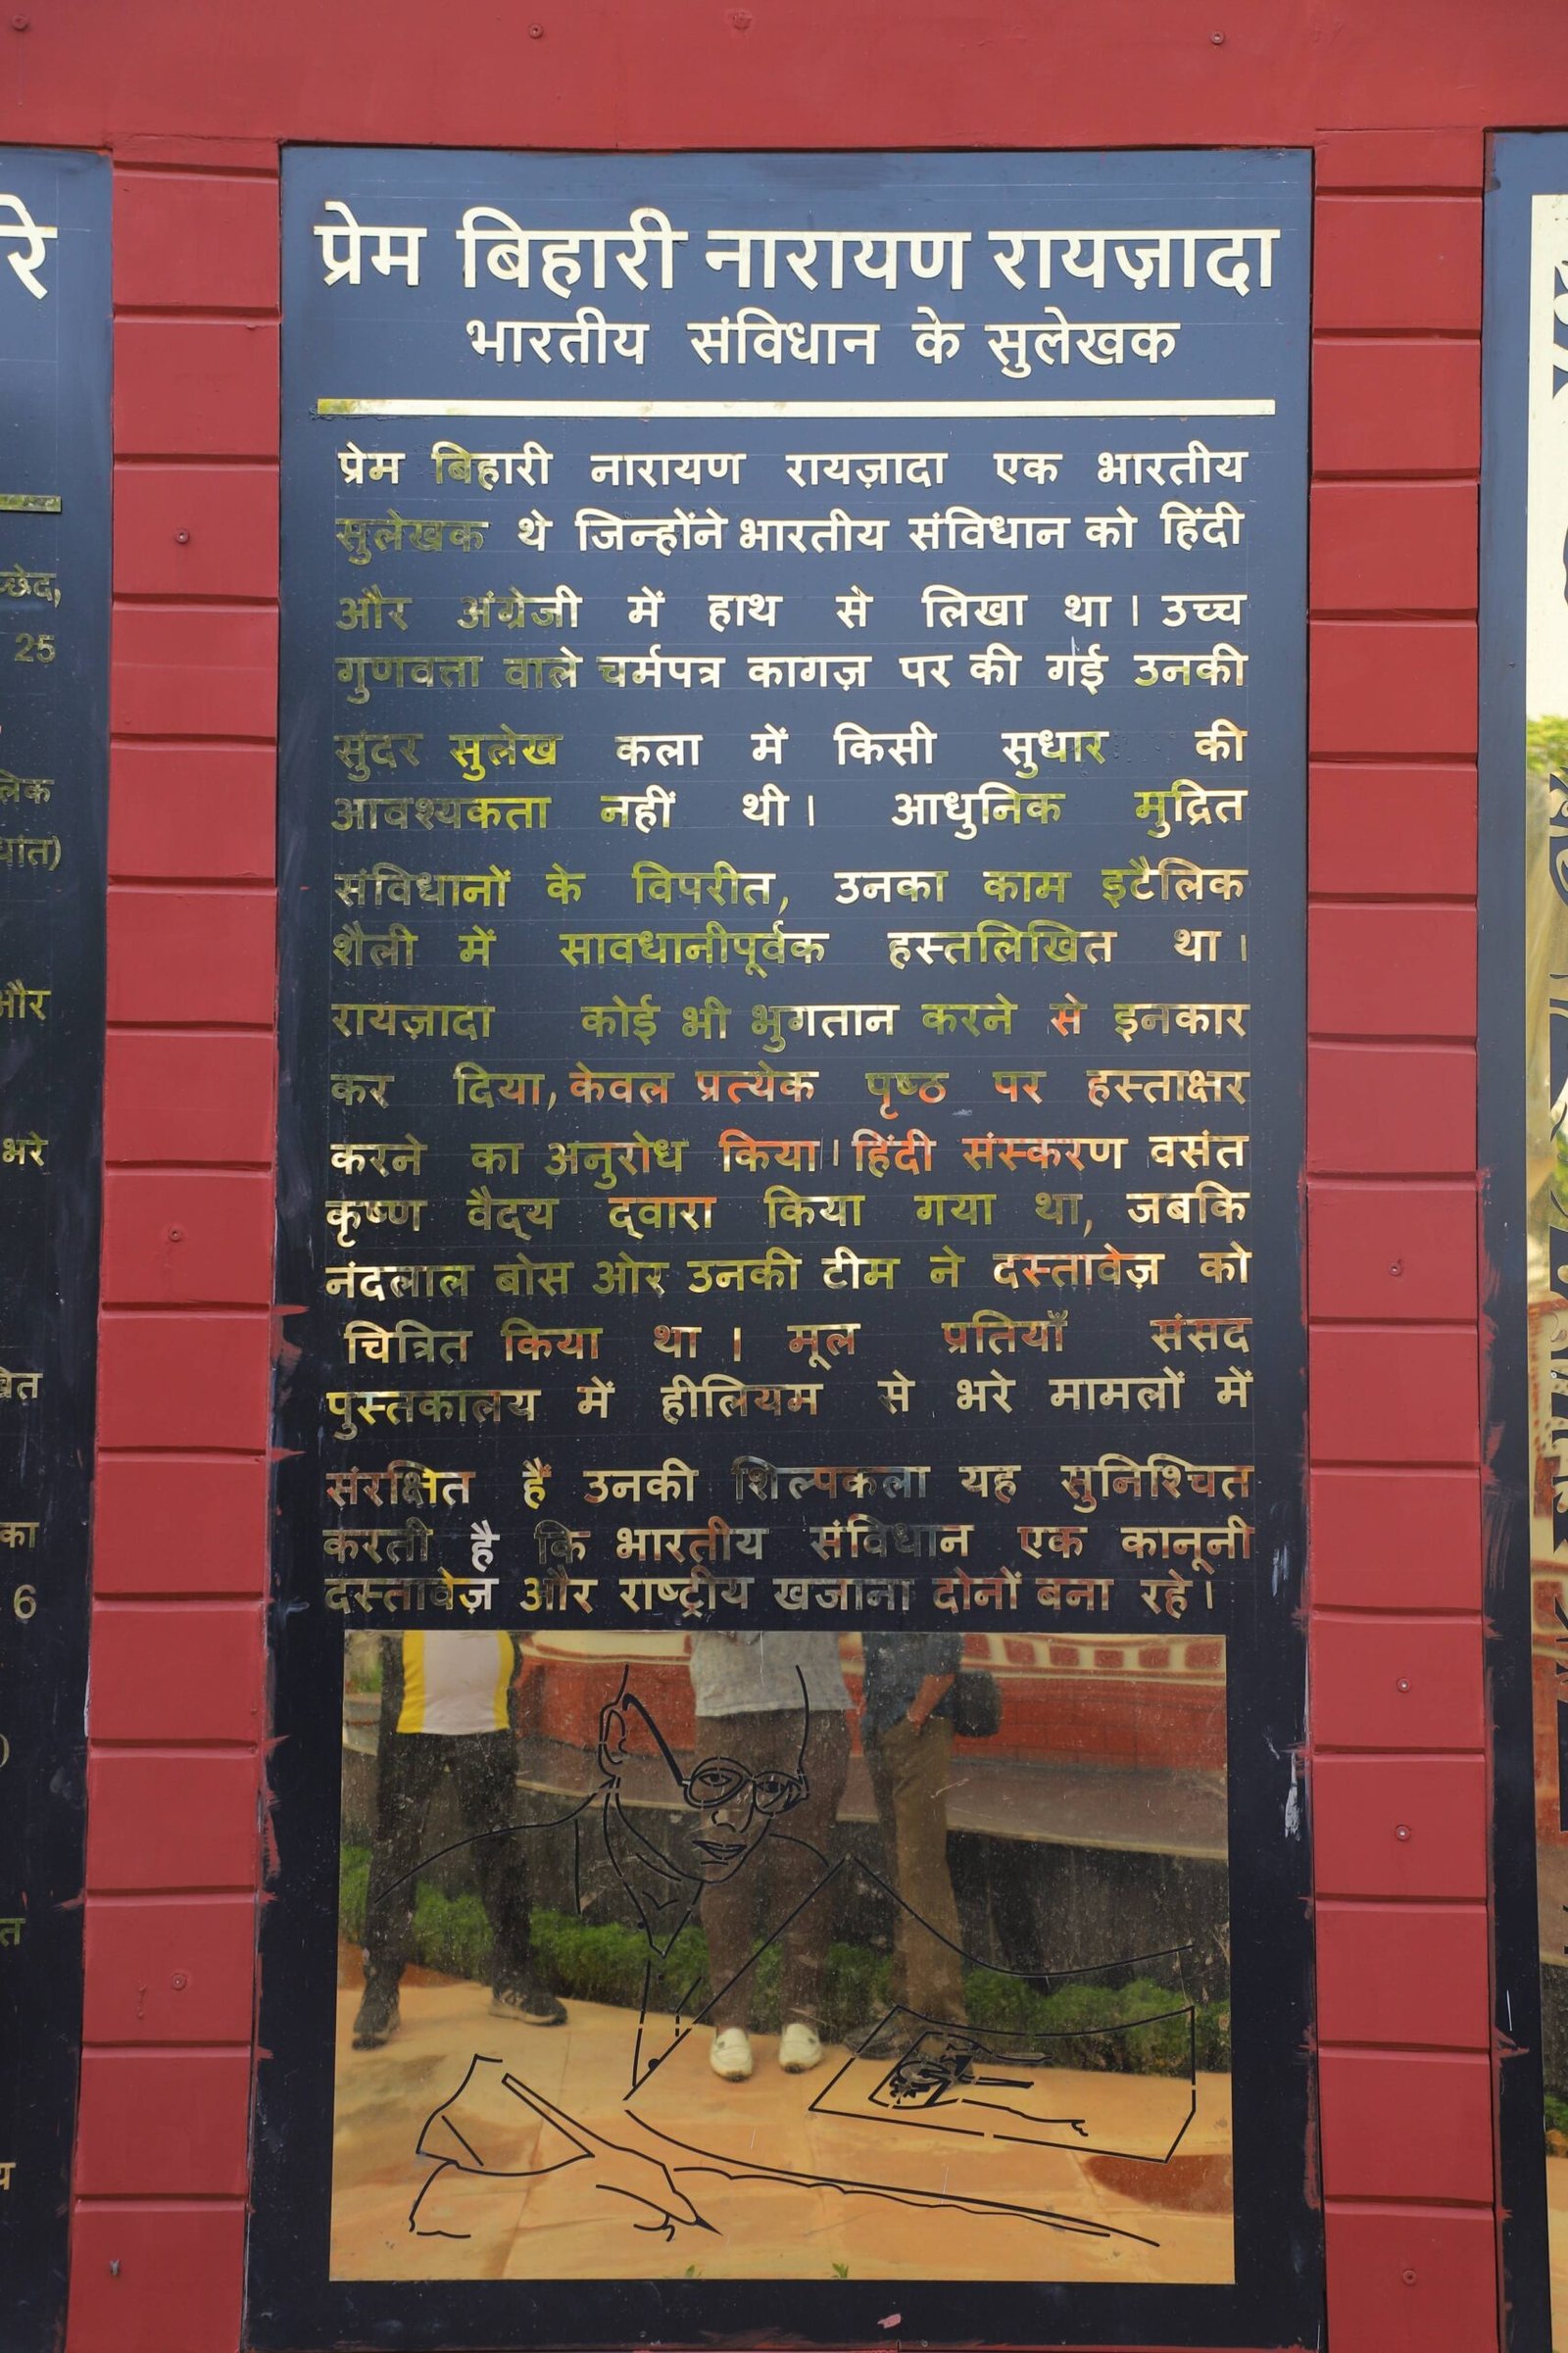 प्रेम बिहारी नारायण रायज़ादा
भारतीय संविधान के सुलेखक
प्रेम बिहारी नारायण रायज़ादा एक भारतीय
सुलेखक थे जिन्होंने भारतीय संविधान को हिंदी
और अंग्रेजी में हाथ से लिखा था। उच्च
गुणवत्ता वाले चर्मपत्र कागज़ पर की गई उनकी
सुंदर सुलेख कला में किसी सुधार की
आवश्यकता नहीं थी। आधुनिक मुद्रित
संविधानों के विपरीत, उनका काम इटैलिक
शैली में सावधानीपूर्वक हस्तलिखित था।
रायज़ादा कोई भी भुगतान करने से इनकार
कर दिया, केवल प्रत्येक पृष्ठ पर हस्ताक्षर
करने का अनुरोध किया। हिंदी संस्करण वसंत
कृष्ण वैद्य द्वारा किया गया था, जबकि
नंदलाल बोस ओर उनकी टीम ने दस्तावेज़ को
चित्रित किया था। मूल प्रतियाँ संसद
पुस्तकालय में हीलियम से भरे मामलों में
संरक्षित हैं उनकी शिल्पकला यह सुनिश्चित
करती है कि भारतीय संविधान एक कानूनी
दस्तावेज़ और राष्ट्रीय खजाना दोनों बना रहे।
रे
25
और
भरे
का
6